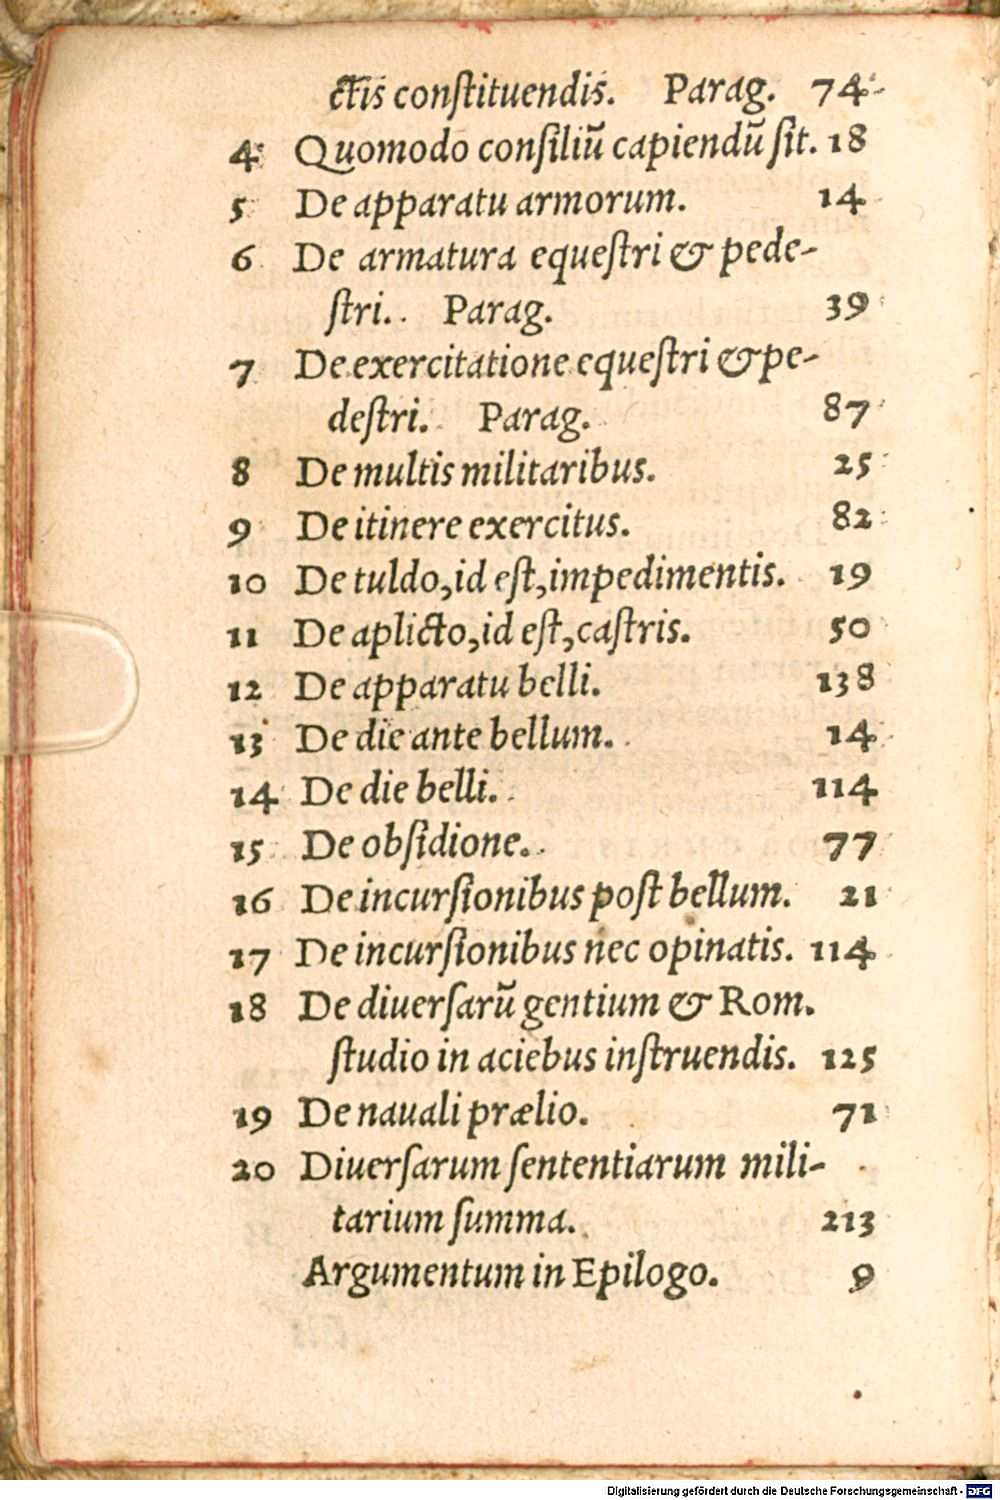 ctis conſtituendis. Parag. 74
4 Quomodo conſiliū capiendū ſit. 18
5 De apparatu armorum. 14
6 De armatura equeſtri & pede-
ſtri. Parag. 39
7 De exercitatione equeſtri & pe-
deſtri. Parag. 87
8 De multis militaribus. 25
9 De itinere exercitus. 82
10 De tuldo, id eſt, impedimentis. 19
11 De aplicto, id eſt, caſtris. 50
12 De apparatu belli. 138
13 De die ante bellum. 14
14 De die belli. 114
15 De obſidione. 77
16 De incurſionibus poſt bellum. 21
17 De incurſionibus nec opinatis. 114
18 De diuerſarū gentium & Rom.
ſtudio in aciebus inſtruendis. 125
19 De nauali prælio. 71
20 Diuerſarum ſententiarum mili-
tarium ſumma. 213
Argumentum in Epilogo. 9
Digitalisierung gefördert durch die Deutsche Forschungsgemeinschaft - DFG